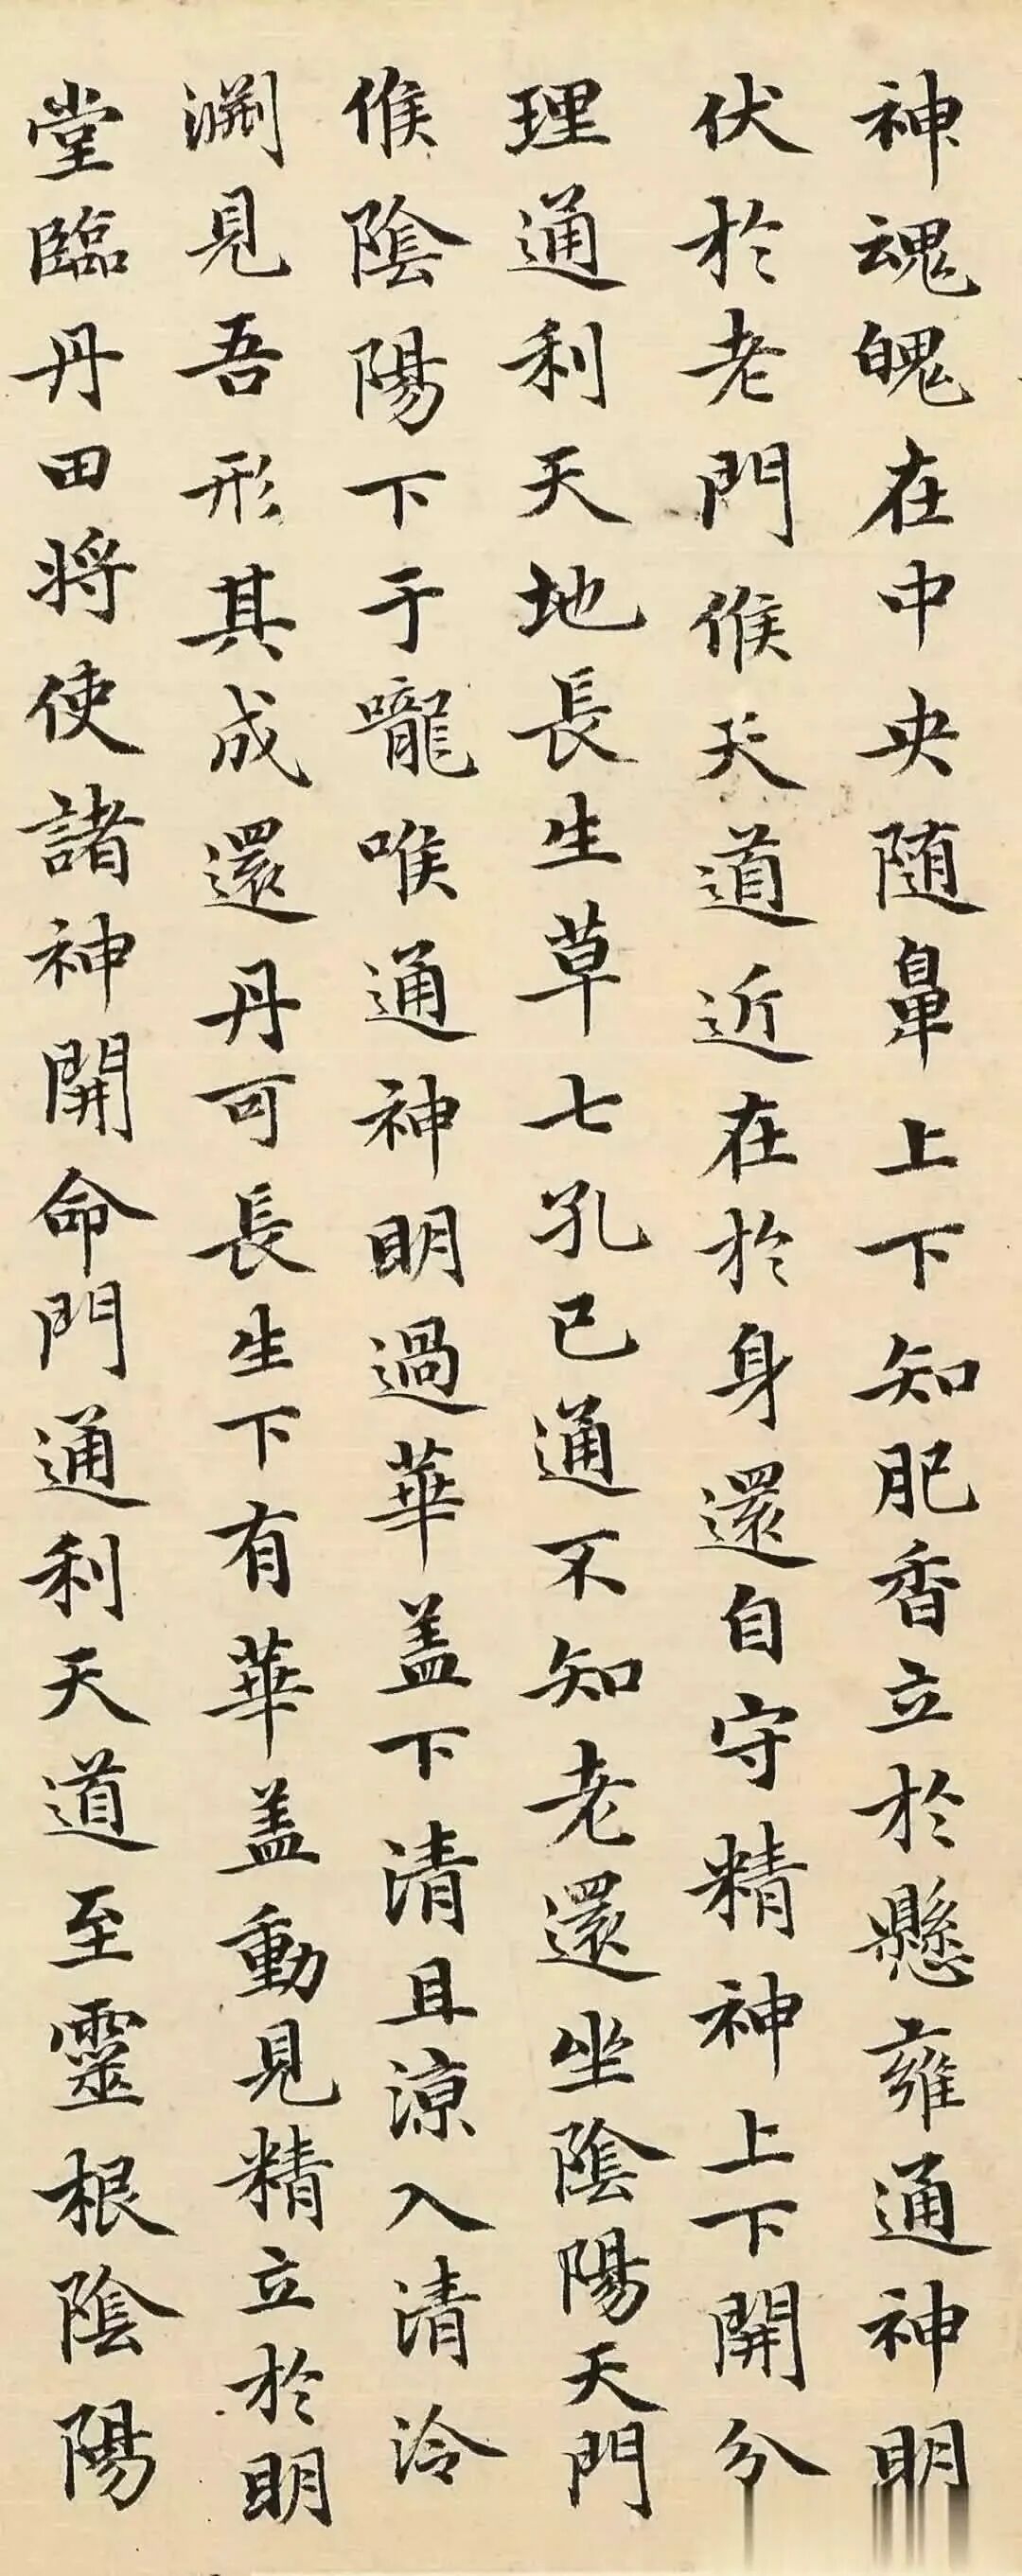 神魂魄在中央随鼻上下知肥香立於懸雍通神明
伏於老門候天道近在於身還自守精神上下開分
理通利天地長生草七孔已通不知老還坐陰陽天門
候陰陽下于嚨喉通神明過華盖下清且涼入清泠
淵見吾形其成還丹可長生下有華盖動見精立於明
堂臨丹田將使諸神開命門通利天道至靈根陰陽